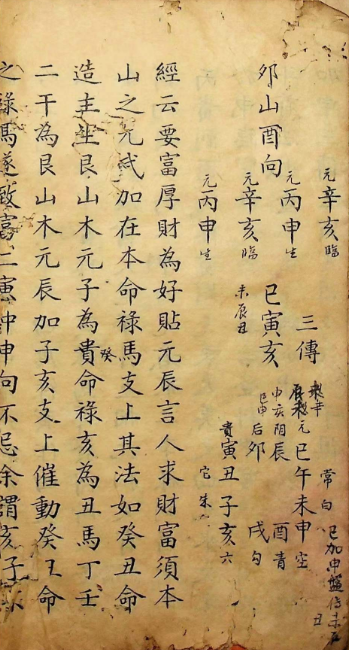 元辛亥臨
元丙申生
三傳
巳午未申空
酉青
常勾
卯山酉向
元辛亥臨
未辰丑
巳寅亥
申亥阴辰
后卯
戌勾
貴寅丑子亥六
元丙申生
經云要富厚財為好貼元辰言人求財富須本
山之元武加在本命祿馬支上其法如癸丑命
造主坐艮山木元子為貴命祿亥為丑馬丁壬
癸
二干為艮山木元辰加子亥支上催動癸丑命
之祿馬遂致富二寅冲申向不忌余謂亥子